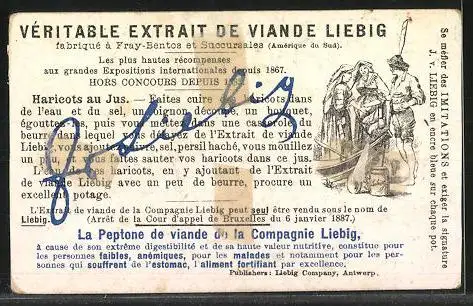 VÉRITABLE EXTRAIT DE VIANDE LIEBIG
fabriqué à Fray-Bentos et Succursales (Amérique du Sud).
Les plus hautes récompenses
aux grandes Expositions internationales depuis 1867.
HORS CONCOURS DEPUIS
Haricots au Jus. — Faites cuire des haricots dans
de l'eau et du sel, un oignon, découpé, un bouquet,
égouttez-les, puis vous mettez dans une casserole du
beurre dans lequel vous délayez de l'Extrait de viande
Liebig, vous ajoutez poivre, sel, persil haché, vous mouillez
un peu et vous faites sauter vos haricots dans ce jus.
L'eau des haricots, en y ajoutant de l'Extrait
de viande Liebig avec un peu de beurre, procure un
excellent potage.
L'Extrait de viande de la Compagnie Liebig peut seul être vendu sous le nom de
Liebig. (Arrêt de la Cour d'appel de Bruxelles du 6 janvier 1887.)
La Peptone de viande de la Compagnie Liebig,
à cause de son extrême digestibilité et de sa haute valeur nutritive, constitue pour
les personnes faibles, anémiques, pour les malades et notamment pour les per-
sonnes qui souffrent de l'estomac, l'aliment fortifiant par excellence.
Publishers: Liebig Company, Antwerp.
Se méfier des IMITATIONS et exiger la signature
J. v. LIEBIG en encre bleue sur chaque pot.